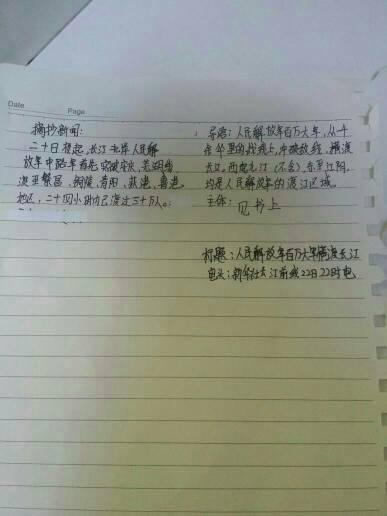 Date
Page
摘抄新闻:
二十日夜起,长江北岸人民解
放军中路军首先突破安庆,芜湖线
渡至繁昌、铜陵、青阳、荻港、鲁港
地区,二十四小时内已渡过三十万人。
导语:人民解放军百万大军,从一千
余华里的战线上,冲破敌线,横渡
长江。西起九江(不含),东至江阴,
均是人民解放军的渡江区域。
主体:见书上
标题:人民解放军百万大军横渡长江
电头:新华社长江前线22日22时电